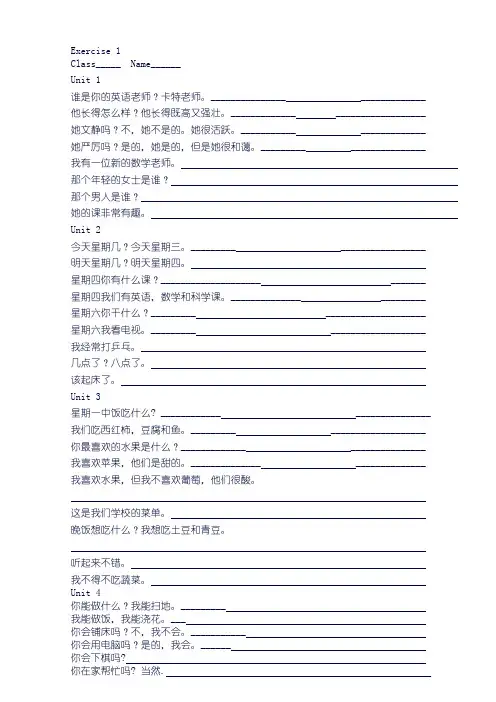 Exercise 1
Class_____ Name______
Unit 1
谁是你的英语老师？卡特老师。
他长得怎么样？他长得既高又强壮。
她文静吗？不，她不是的。她很活跃。
她严厉吗？是的，她是的，但是她很和蔼。
我有一位新的数学老师。
那个年轻的女士是谁？
那个男人是谁？
她的课非常有趣。
Unit 2
今天星期几？今天星期三。
明天星期几？明天星期四。
星期四你有什么课？
星期四我们有英语，数学和科学课。
星期六你干什么？
星期六我看电视。
我经常打乒乓。
几点了？八点了。
该起床了。
Unit 3
星期一中饭吃什么？
我们吃西红柿，豆腐和鱼。
你最喜欢的水果是什么？
我喜欢苹果，他们是甜的。
我喜欢水果，但我不喜欢葡萄，他们很酸。
这是我们学校的菜单。
晚饭想吃什么？我想吃土豆和青豆。
听起来不错。
我不得不吃蔬菜。
Unit 4
你能做什么？我能扫地。
我能做饭，我能浇花。
你会铺床吗？不，我不会。
你会用电脑吗？是的，我会。
你会下棋吗?
你在家帮忙吗? 当然.